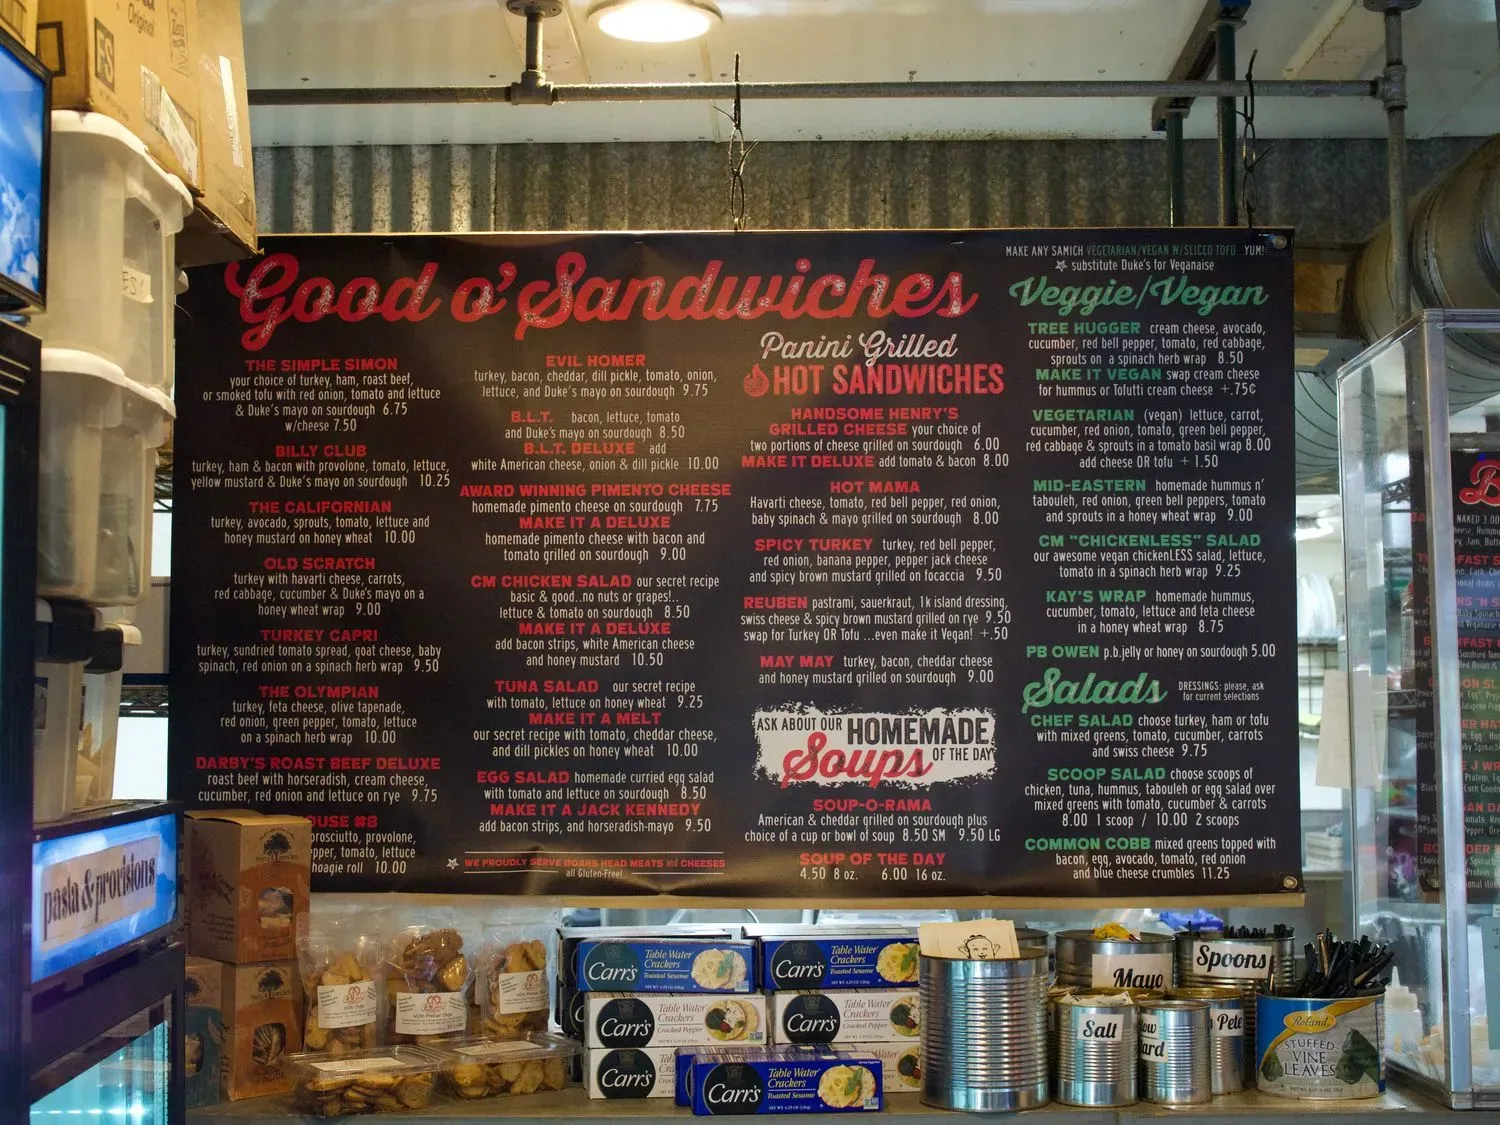 Good o' Sandwiches
THE SIMPLE SIMON
your choice of turkey, ham, roast beef,
or smoked tofu with red onion, tomato and lettuce
& Duke's mayo on sourdough 6.75
w/cheese 7.50
BILLY CLUB
turkey, ham & bacon with provolone, tomato, lettuce,
yellow mustard & Duke's mayo on sourdough 10.25
THE CALIFORNIAN
turkey, avocado, sprouts, tomato, lettuce and
honey mustard on honey wheat 10.00
OLD SCRATCH
turkey with havarti cheese, carrots,
red cabbage, cucumber & Duke's mayo on a
honey wheat wrap 9.00
TURKEY CAPRI
turkey, sundried tomato spread, goat cheese, baby
spinach, red onion on a spinach herb wrap 9.50
THE OLYMPIAN
turkey, feta cheese, olive tapenade,
red onion, green pepper, tomato, lettuce
on a spinach herb wrap 10.00
DARBY'S ROAST BEEF DELUXE
roast beef with horseradish, cream cheese,
cucumber, red onion and lettuce on rye 9.75
OUSE #8
prosciutto, provolone,
pper, tomato, lettuce
hoagie roll 10.00
EVIL HOMER
turkey, bacon, cheddar, dill pickle, tomato, onion,
lettuce, and Duke's mayo on sourdough 9.75
B.L.T. bacon, lettuce, tomato
and Duke's mayo on sourdough 8.50
B.L.T. DELUXE add
white American cheese, onion & dill pickle 10.00
AWARD WINNING PIMENTO CHEESE
homemade pimento cheese on sourdough 7.75
MAKE IT A DELUXE
homemade pimento cheese with bacon and
tomato grilled on sourdough 9.00
CM CHICKEN SALAD our secret recipe
basic & good..no nuts or grapes!..
lettuce & tomato on sourdough 8.50
MAKE IT A DELUXE
add bacon strips, white American cheese
and honey mustard 10.50
TUNA SALAD our secret recipe
with tomato, lettuce on honey wheat 9.25
MAKE IT A MELT
our secret recipe with tomato, cheddar cheese,
and dill pickles on honey wheat 10.00
EGG SALAD homemade curried egg salad
with tomato and lettuce on sourdough 8.50
MAKE IT A JACK KENNEDY
add bacon strips, and horseradish-mayo 9.50
WE PROUDLY SERVE BOARS HEAD MEATS and CHEESES
all Gluten-Free!
Panini Grilled
HOT SANDWICHES
HANDSOME HENRY'S
GRILLED CHEESE your choice of
two portions of cheese grilled on sourdough 6.00
MAKE IT DELUXE add tomato & bacon 8.00
HOT MAMA
Havarti cheese, tomato, red bell pepper, red onion,
baby spinach & mayo grilled on sourdough 8.00
SPICY TURKEY turkey, red bell pepper,
red onion, banana pepper, pepper jack cheese
and spicy brown mustard grilled on focaccia 9.50
REUBEN pastrami, sauerkraut, 1k island dressing,
swiss cheese & spicy brown mustard grilled on rye 9.50
swap for Turkey OR Tofu ...even make it Vegan! +.50
MAY MAY turkey, bacon, cheddar cheese
and honey mustard grilled on sourdough 9.00
ASK ABOUT OUR HOMEMADE
Soups OF THE DAY
SOUP-O-RAMA
American & cheddar grilled on sourdough plus
choice of a cup or bowl of soup 8.50 SM 9.50 LG
SOUP OF THE DAY
4.50 8 oz. 6.00 16 oz.
MAKE ANY SAMICH VEGETARIAN/VEGAN W/SLICED TOFU...YUM!
substitute Duke's for Veganaise
Veggie/Vegan
TREE HUGGER cream cheese, avocado,
cucumber, red bell pepper, tomato, red cabbage,
sprouts on a spinach herb wrap 8.50
MAKE IT VEGAN swap cream cheese
for hummus or Tofutti cream cheese +.75¢
VEGETARIAN (vegan) lettuce, carrot,
cucumber, red onion, tomato, green bell pepper,
red cabbage & sprouts in a tomato basil wrap 8.00
add cheese OR tofu + 1.50
MID-EASTERN homemade hummus n'
tabouleh, red onion, green bell peppers, tomato
and sprouts in a honey wheat wrap 9.00
CM "CHICKENLESS" SALAD
our awesome vegan chickenLESS salad, lettuce,
tomato in a spinach herb wrap 9.25
KAY'S WRAP homemade hummus,
cucumber, tomato, lettuce and feta cheese
in a honey wheat wrap 8.75
PB OWEN p.b.jelly or honey on sourdough 5.00
Salads DRESSINGS: please, ask
for current selections
CHEF SALAD choose turkey, ham or tofu
with mixed greens, tomato, cucumber, carrots
and swiss cheese 9.75
SCOOP SALAD choose scoops of
chicken, tuna, hummus, tabouleh or egg salad over
mixed greens with tomato, cucumber & carrots
8.00 1 scoop / 10.00 2 scoops
COMMON COBB mixed greens topped with
bacon, egg, avocado, tomato, red onion
and blue cheese crumbles 11.25
pasta & provisions
Carr's Table Water Crackers Toasted Sesame
Carr's Table Water Crackers Toasted Sesame
Carr's Table Water Crackers Cracked Pepper
Carr's Table Water Crackers Cracked Pepper
Carr's
Carr's Table Water Crackers Toasted Sesame
Mayo
Spoons
Salt
Pete
Roland
STUFFED
VINE
LEAVES
NAKED 3.00